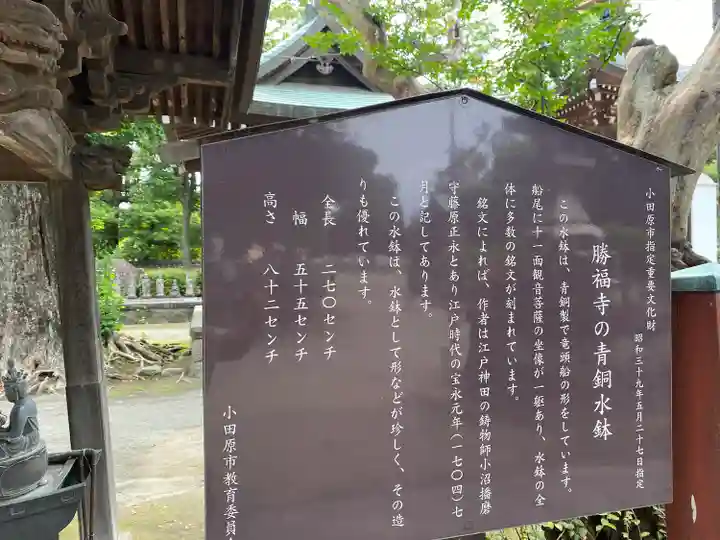 小田原市指定重要文化財
昭和三十九年五月二十七日指定
勝福寺の青銅水鉢
この水鉢は、青銅製で竜頭船の形をしています。
船尾に十一面観音菩薩の坐像が一躯あり、水鉢の全
体に多数の銘文が刻まれています。
銘文によれば、作者は江戸神田の鋳物師小沼播磨
守藤原正永とあり江戸時代の宝永元年（一七〇四）七
月と記してあります。
この水鉢は、水鉢として形などが珍しく、その造
りも優れています。
全長 二七〇センチ
幅 五十五センチ
高さ 八十二センチ
小田原市教育委員